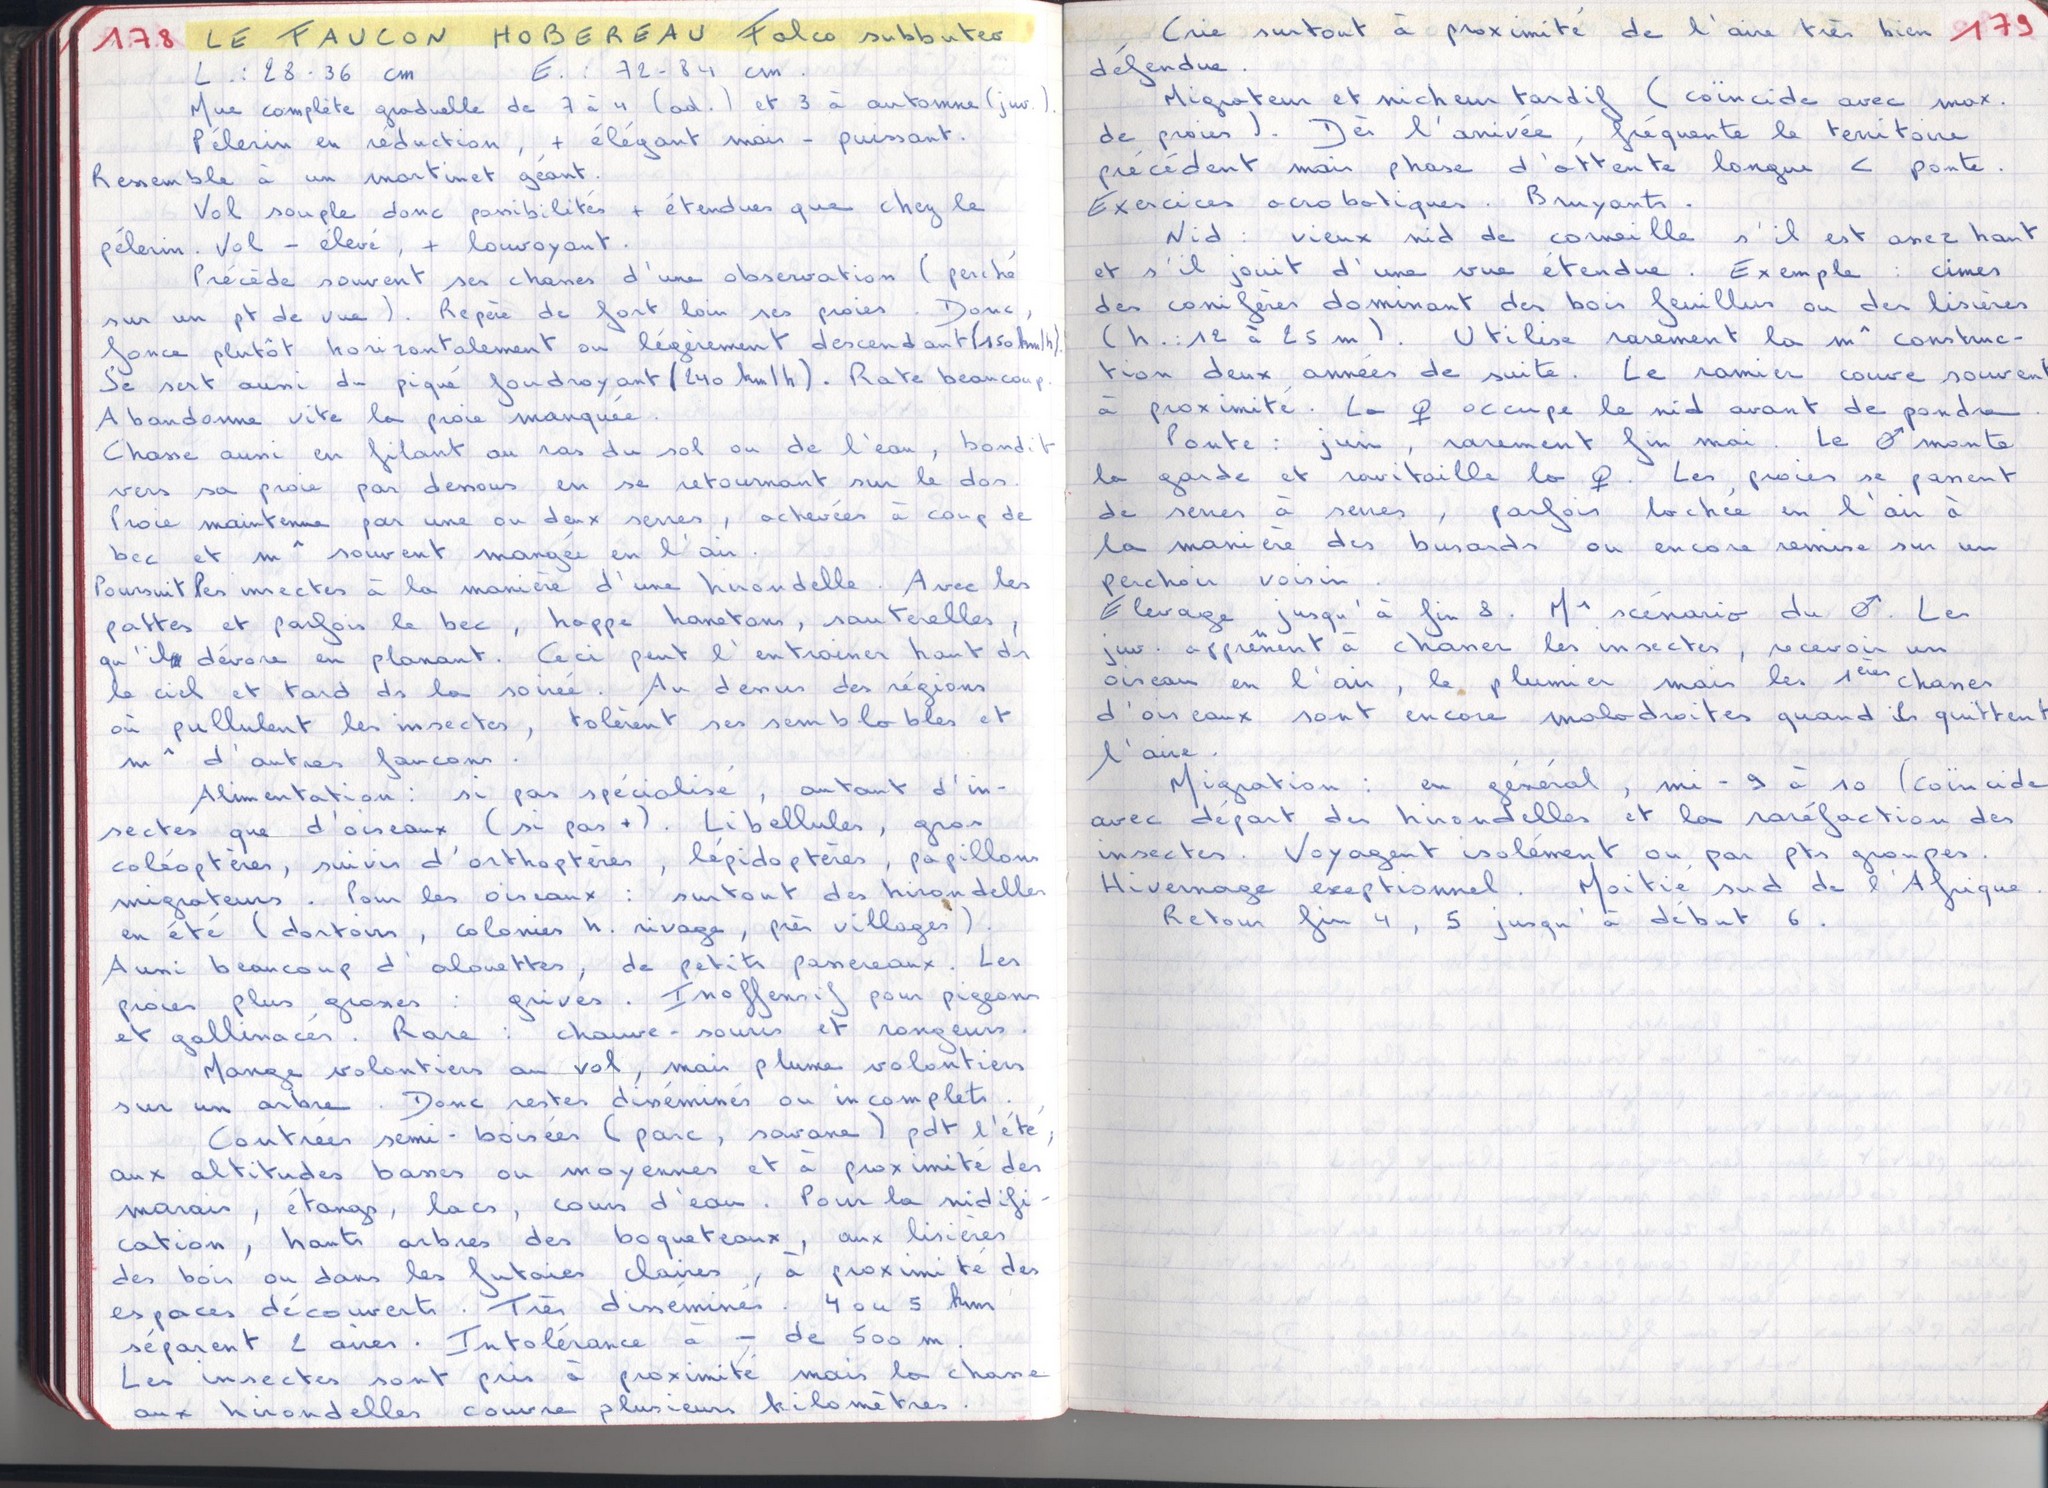 178 LE FAUCON HOBEREAU Falco subbuteo
L.: 28-36 cm E.: 72-84 cm.
Mue complète graduelle de 7 à 4 (ad.) et 3 à automne (juv.).
Pélerin en réduction, + élégant mais - puissant.
Ressemble à un martinet géant.
Vol souple donc possibilités + étendues que chez le
pélerin. Vol - élevé, + louvoyant.
Précède souvent ses chasses d'une observation (perché
sur un pt de vue). Repère de fort loin ses proies. Donc,
fonce plutôt horizontalement ou légèrement descendant (150 km/h).
Se sert aussi du piqué foudroyant (240 km/h). Rate beaucoup.
Abandonne vite la proie manquée.
Chasse aussi en filant au ras du sol ou de l'eau, bondit
vers sa proie par dessous en se retournant sur le dos.
Proie maintenue par une ou deux serres, achevées à coup de
bec et m^ souvent mangée en l'air.
Poursuit les insectes à la manière d'une hirondelle. Avec les
pattes et parfois le bec, happe hannetons, sauterelles,
qu'il dévore en planant. Ceci peut l'entrainer haut ds
le ciel et tard ds la soirée. Au dessus des régions
où pullulent les insectes, tolèrent ses semblables et
m^ d'autres faucons.
Alimentation : si pas spécialisé, autant d'in-
sectes que d'oiseaux (si pas +). Libellules, gros
coléoptères, suivis d'orthoptères, lépidoptères, papillons
migrateurs. Pour les oiseaux : surtout des hirondelles
en été (dortoirs, colonies h. rivage, près villages).
Aussi beaucoup d'alouettes, de petits passereaux. Les
proies plus grosses : grives. Inoffensif pour pigeons
et gallinacés. Rare : chauve-souris et rongeurs.
Mange volontiers au vol, mais plume volontiers
sur un arbre. Donc restes disséminés ou incomplets.
Contrées semi-boisées (parc, savane) pdt l'été,
aux altitudes basses ou moyennes et à proximité des
marais, étangs, lacs, cours d'eau. Pour la nidifi-
cation, hauts arbres des boqueteaux, aux lisières
des bois ou dans les futaies claires, à proximité des
espaces découverts. Très disséminés. 4 ou 5 km
séparent 2 aires. Intolérance à - de 500 m.
Les insectes sont pris à proximité mais la chasse
aux hirondelles couvre plusieurs kilomètres.
Crie surtout à proximité de l'aire très bien 179
défendue.
Migrateur et nicheur tardif (coïncide avec max.
de proies). Dès l'arrivée, fréquente le territoire
précédent mais phase d'attente longue < ponte.
Exercices acrobatiques. Bruyants.
Nid : vieux nid de corneille s'il est assez haut
et s'il jouit d'une vue étendue. Exemple : cimes
des conifères dominant des bois feuillus ou des lisières
(h.: 12 à 25 m). Utilise rarement la m^ construc-
tion deux années de suite. Le ramier couve souvent
à proximité. La ♀ occupe le nid avant de pondre.
Ponte : juin, rarement fin mai. Le ♂ monte
la garde et ravitaille la ♀. Les proies se passent
de serres à serres, parfois lachée en l'air à
la manière des busards ou encore remise sur un
perchoir voisin.
Elevage jusqu'à fin 8. M^ scénario du ♂. Les
juv. apprënent à chasser les insectes, recevoir un
oiseau en l'air, le plumer mais les 1ères chasses
d'oiseaux sont encore maladroites quand ils quittent
l'aire.
Migration : en général, mi-9 à 10 (coïncide
avec départ des hirondelles et la raréfaction des
insectes. Voyagent isolément ou par pts groupes.
Hivernage exeptionnel. Moitié sud de l'Afrique.
Retour fin 4, 5 jusqu'à début 6.